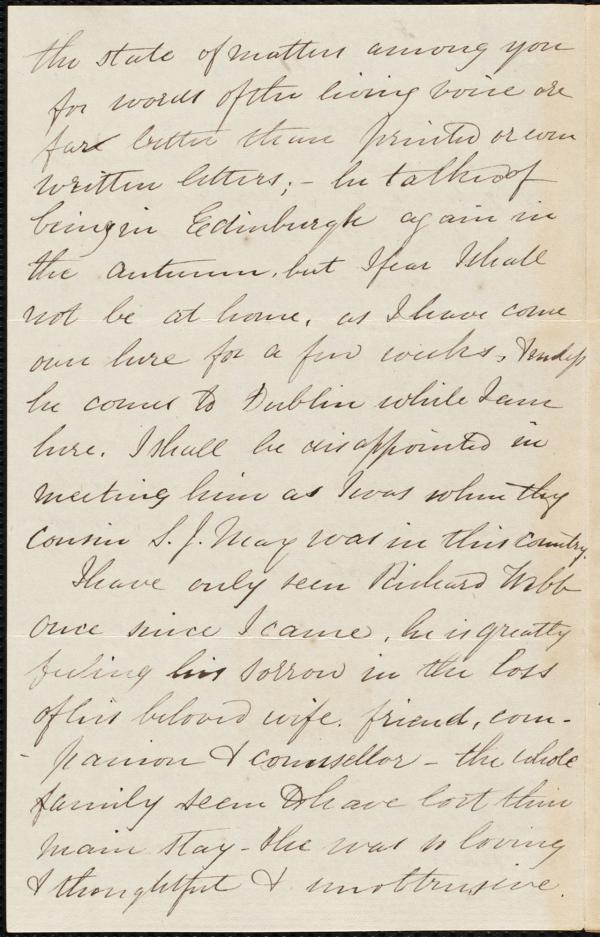 the state of matters among you
for words of the living voice are
far better than printed or even
written letters; - he talked of
being in Edinburgh again in
the autumn, but I fear I shall
not be at home, as I have come
over here for a few weeks, & unless
he comes to Dublin while I am
here. I shall be disappointed in
meeting him as I was when thy
cousin S. J. May was in this country.
I have only seen Richard Webb
once since I came, he is greatly
feeling his sorrow in the loss
of his beloved wife. friend, com-
-panion & counsellor - the whole
family seem to have lost their
main stay - she was so loving
& thoughtful & unobtrusive.